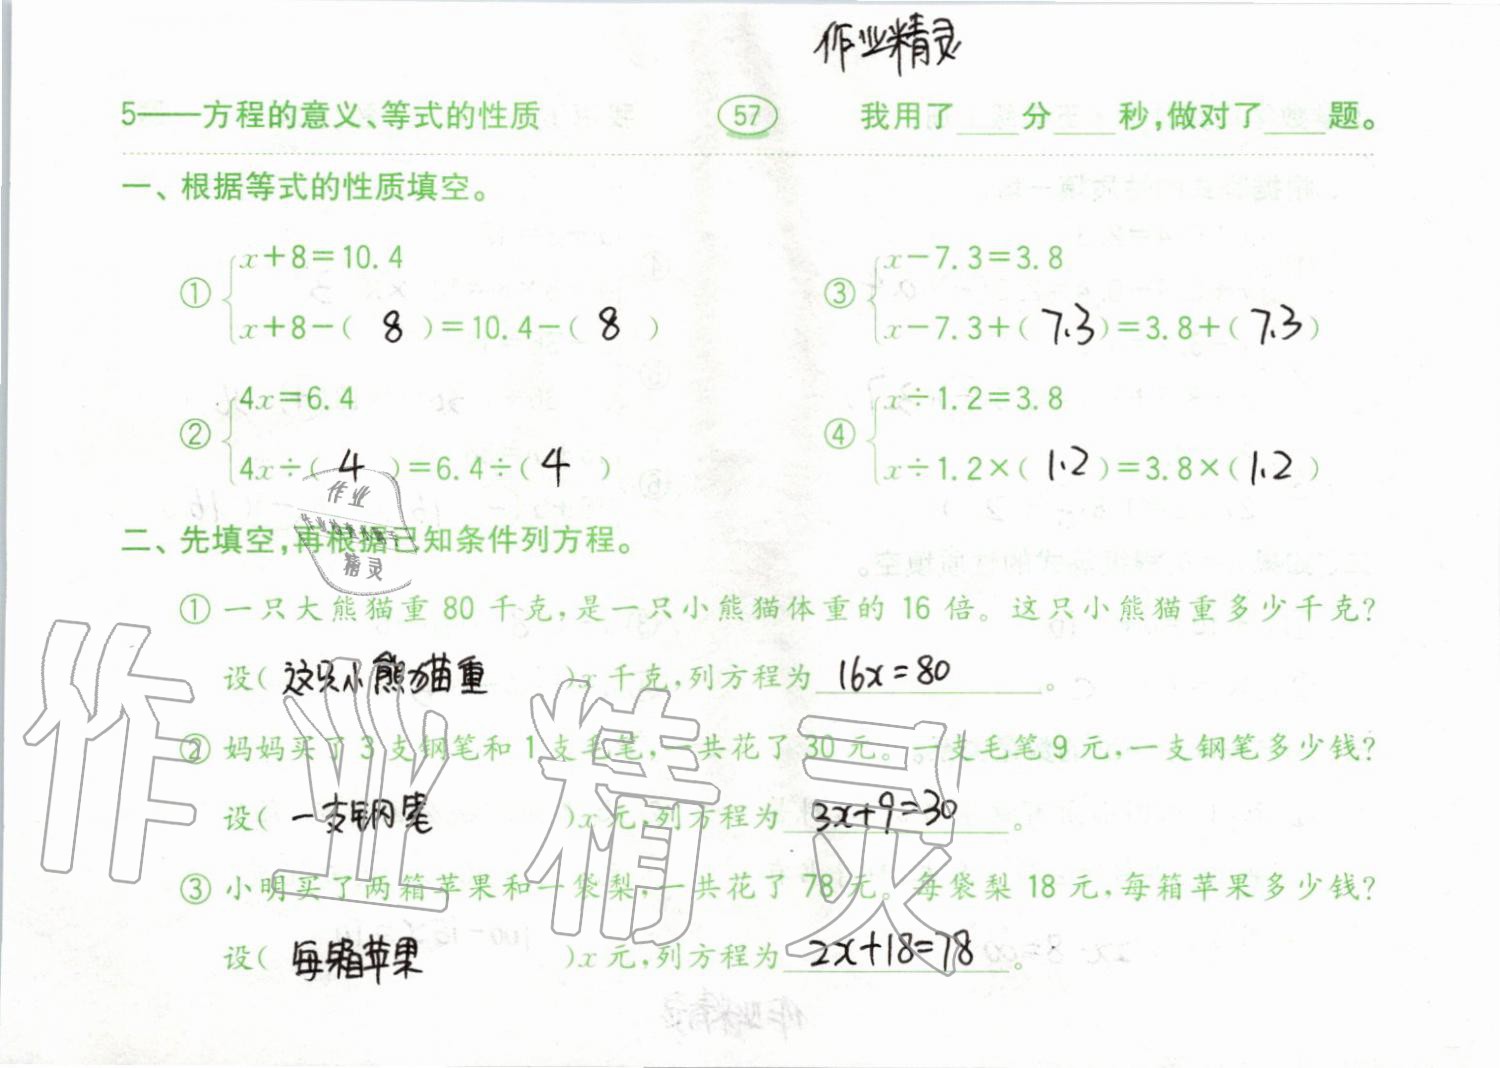 作业精灵
5——方程的意义、等式的性质 57 我用了____分____秒,做对了____题。
一、根据等式的性质填空。
① x+8=10.4
x+8-( 8 )=10.4-( 8 )
② 4x=6.4
4x÷( 4 )=6.4÷( 4 )
③ x-7.3=3.8
x-7.3+( 7.3 )=3.8+( 7.3 )
④ x÷1.2=3.8
x÷1.2×( 1.2 )=3.8×( 1.2 )
二、先填空,再根据已知条件列方程。
① 一只大熊猫重 80 千克,是一只小熊猫体重的 16 倍。这只小熊猫重多少千克?
设( 这只小熊猫重 )x 千克,列方程为 16x=80 。
② 妈妈买了 3 支钢笔和 1 支毛笔,一共花了 30 元。一支毛笔 9 元,一支钢笔多少钱?
设( 一支钢笔 )x 元,列方程为 3x+9=30 。
③ 小明买了两箱苹果和一袋梨,一共花了 78 元。每袋梨 18 元,每箱苹果多少钱?
设( 每箱苹果 )x 元,列方程为 2x+18=78 。
作业精灵
作业
精灵